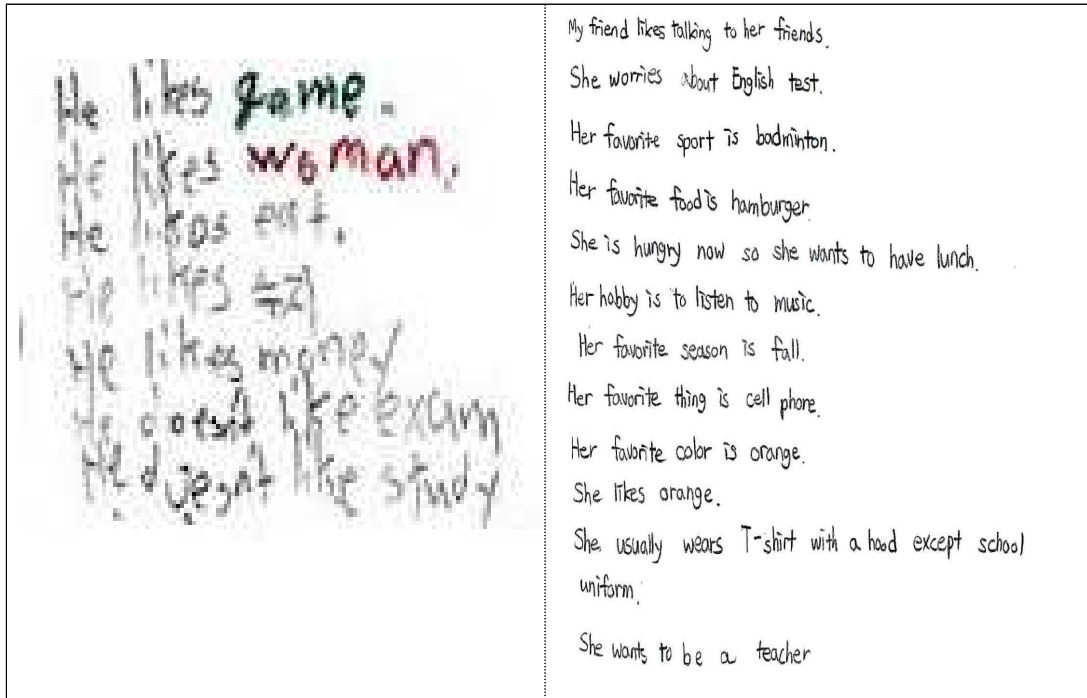 He likes game.
He likes woman.
He likes eat.
He likes
He likes money
He doesn't like exam
He doesn't like study
My friend likes talking to her friends.
She worries about English test.
Her favorite sport is badminton.
Her favorite food is hamburger
She is hungry now so she wants to have lunch.
Her hobby is to listen to music.
Her favorite season is fall.
Her favorite thing is cell phone.
Her favorite color is orange.
She likes orange.
She usually wears T-shirt with a hood except school
uniform.
She wants to be a teacher